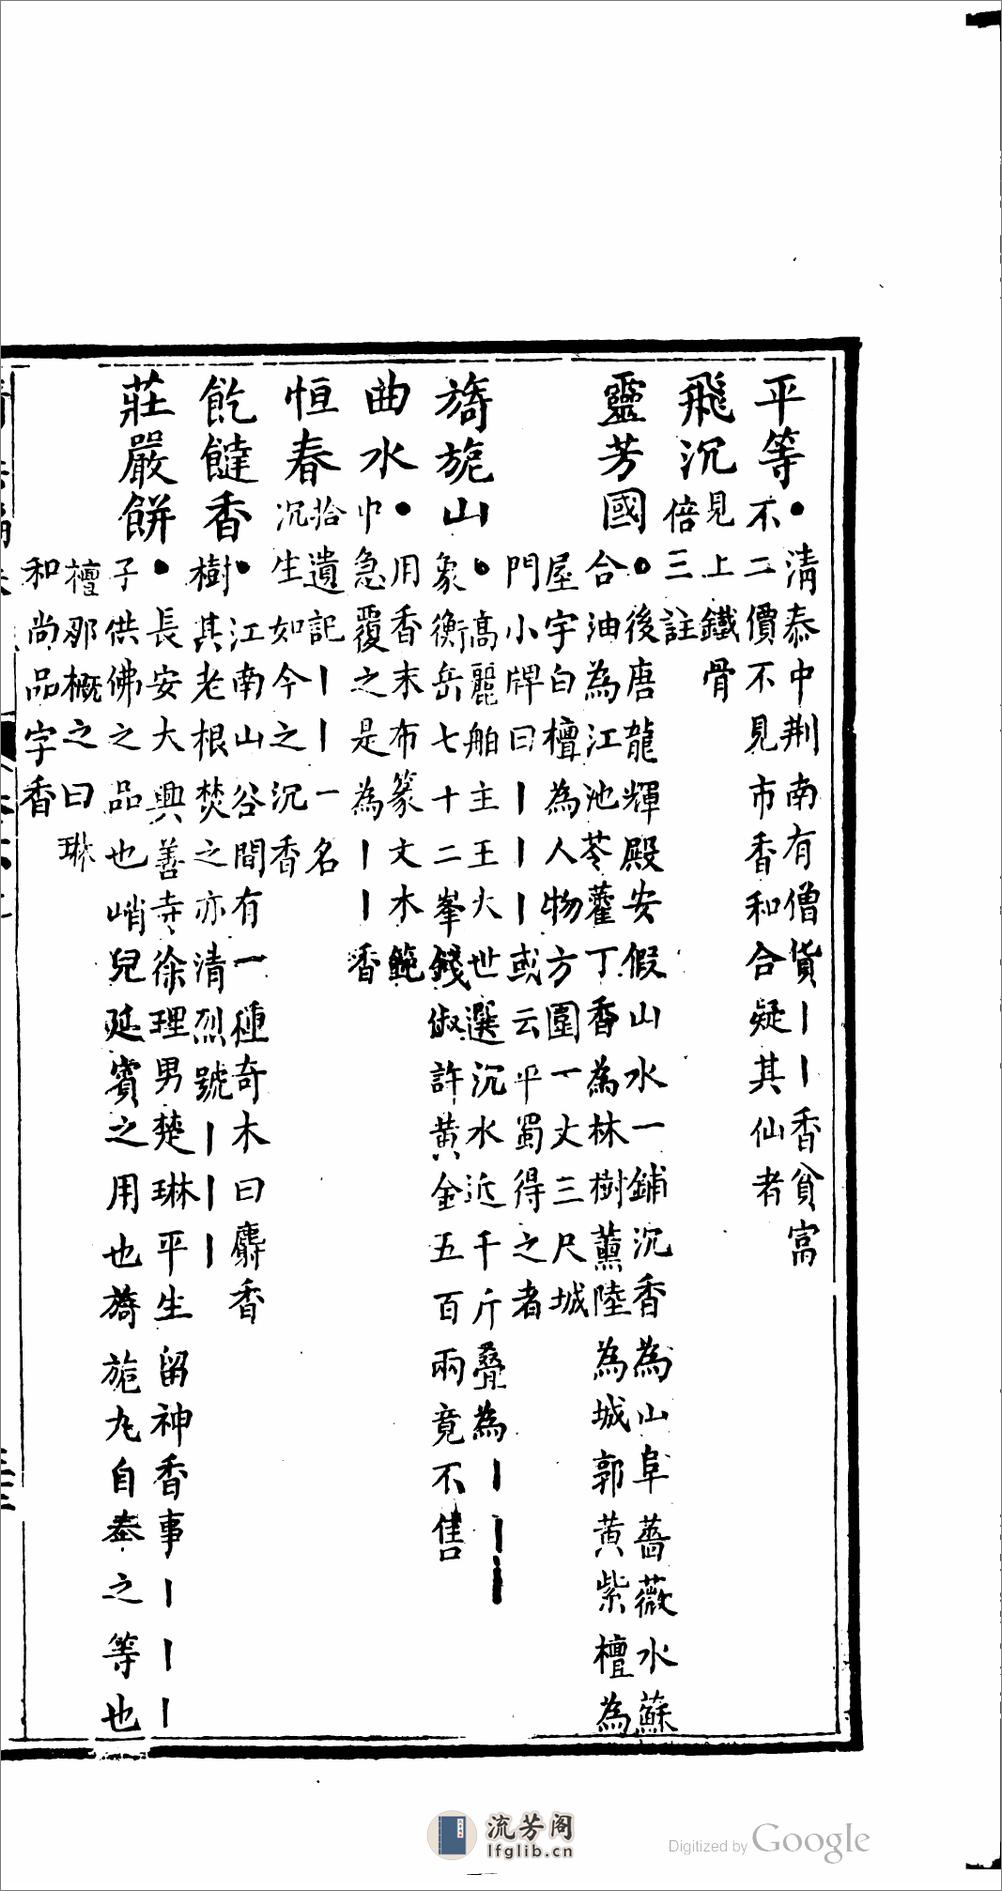 平等•清泰中荆南有僧貨丨丨香貧富
不二價不見市香和合疑其仙者
飛沉見上鐵骨
倍三註
靈芳國•後唐龍輝殿安假山水一鋪沉香為山阜薔薇水蘇
合油為江池苓藿丁香為林樹薰陸為城郭黄紫檀為
屋宇白檀為人物方圍一丈三尺城
門小牌曰丨丨丨或云平蜀得之者
旖旎山•高麗舶主王大世選沉水近千斤疊為丨丨丨
象衡岳七十二峯錢俶許黄金五百兩竟不售
曲水•用香末布篆文木範
巾急覆之是為丨丨香
恒春拾遺記丨丨一名
沉生如今之沉香
香•江南山谷間有一種奇木曰麝香
樹其老根焚之亦清烈號丨丨丨
莊嚴餅•長安大興善寺徐理男楚琳平生留神香事丨丨丨
子供佛之品也峭兒延賓之用也旖旎丸自奉之等也
檀那概之曰琳
和尚品字香
流芳阁
lfglib.cn
Digitized by Google